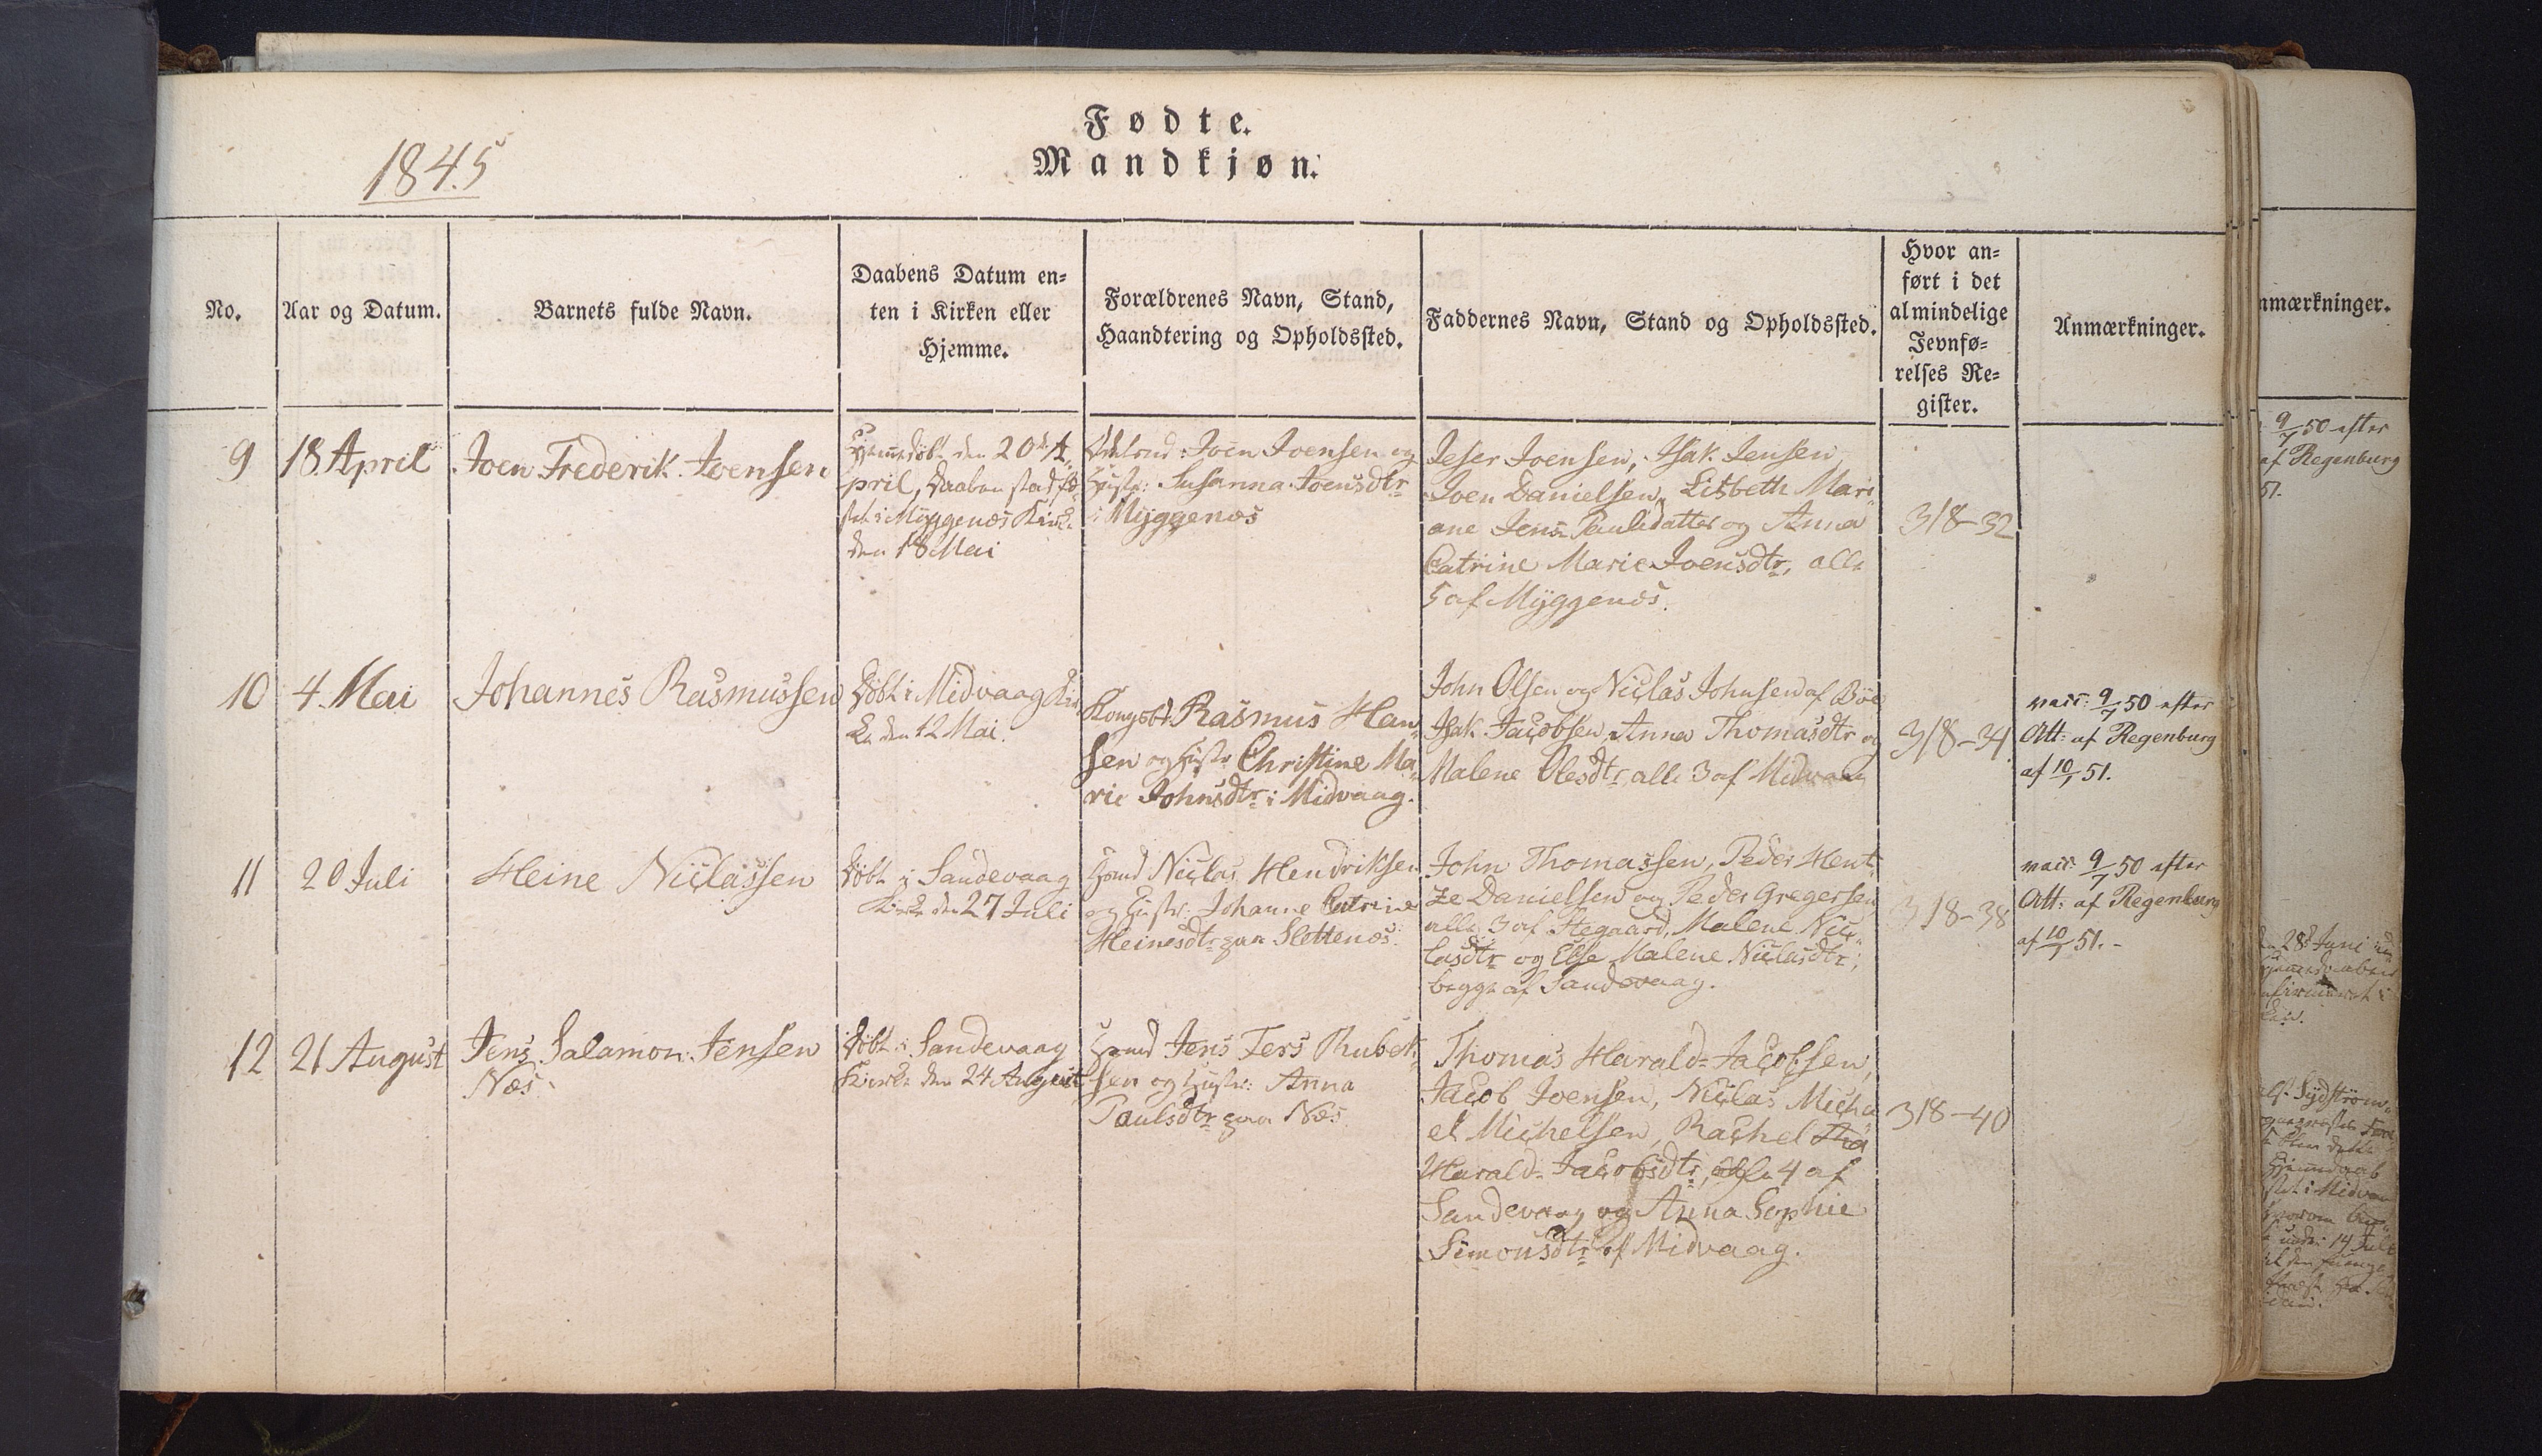 Fødte.
Mandkjøn.
1845
No.
Aar og Datum.
Barnets fulde Navn.
Daabens Datum en=
ten i Kirken eller
Hjemme.
Forældrenes Navn, Stand,
Haandtering og Opholdssted.
Faddernes Navn, Stand og Opholdssted.
Hvor an=
ført i det
almindelige
Jevnfø=
relses Re=
gister.
Anmærkninger.
9
18 April
Joen Frederik Joensen
Hjemmedøbt den 20de A-
pril, Daaben stadfæ-
stet i Myggenæs Kirke
den 18 Mai
Joen Joensen og
Hustr: Susanna Joensdtr
i Myggenæs
Jeser Joensen, Isak Jensen,
Joen Danielsen, Lisbeth Mari-
ane Jens Paulsdatter og Anna
Catrine Marie Joensdtr, alle
5 af Myggenæs.
318-32
10
4 Mai
Johannes Rasmussen
Døbt i Midvaag Kir-
ke den 12 Mai.
Kongsbd. Rasmus Han-
sen og Hustr Christine Ma-
rie Johnsdtr i Midvaag.
John Olsen og Niclas Johnsen af Böe
Isak Jacobsen, Anna Thomasdtr og
Malene Olesdtr, alle 3 af Midvaag
318-34
vacc: 9/7 50 efter
Att: af Regenburg
af 10/1 51.
11
20 Juli
Heine Niclassen
Døbt i Sandevaag
Kirke den 27 Juli
Hmd Niclas Hendriksen
og Hustr: Johanne Catrine
Heinesdtr paa Slettenæs.
John Thomassen, Peder Hent-
ze Danielsen og Peder Gregersen
alle 3 af Stegaard, Malene Nic-
lasdtr og Else Malene Niclasdtr,
begge af Sandevaag.
318-38
vacc: 9/7 50 efter
Att: af Regenburg
af 10/1 51.-
12
21 August
Jens Salamon Jensen
Næs.
Døbt i Sandevaag
Kirke den 24 August
Hmd Jens Jers Rubek-
sen og Hustr: Anna
Paulsdtr paa Næs.
Thomas Harald-Jacobsen,
Jacob Joensen, Niclas Micha-
el Michelsen, Rachel
Harald-Jacobsdtr, alle 4 af
Sandevaag og Anna Sophie
Simonsdtr af Midvaag.
318-40
nmærkninger.
9/7 50 efter
af Regenburg
51.